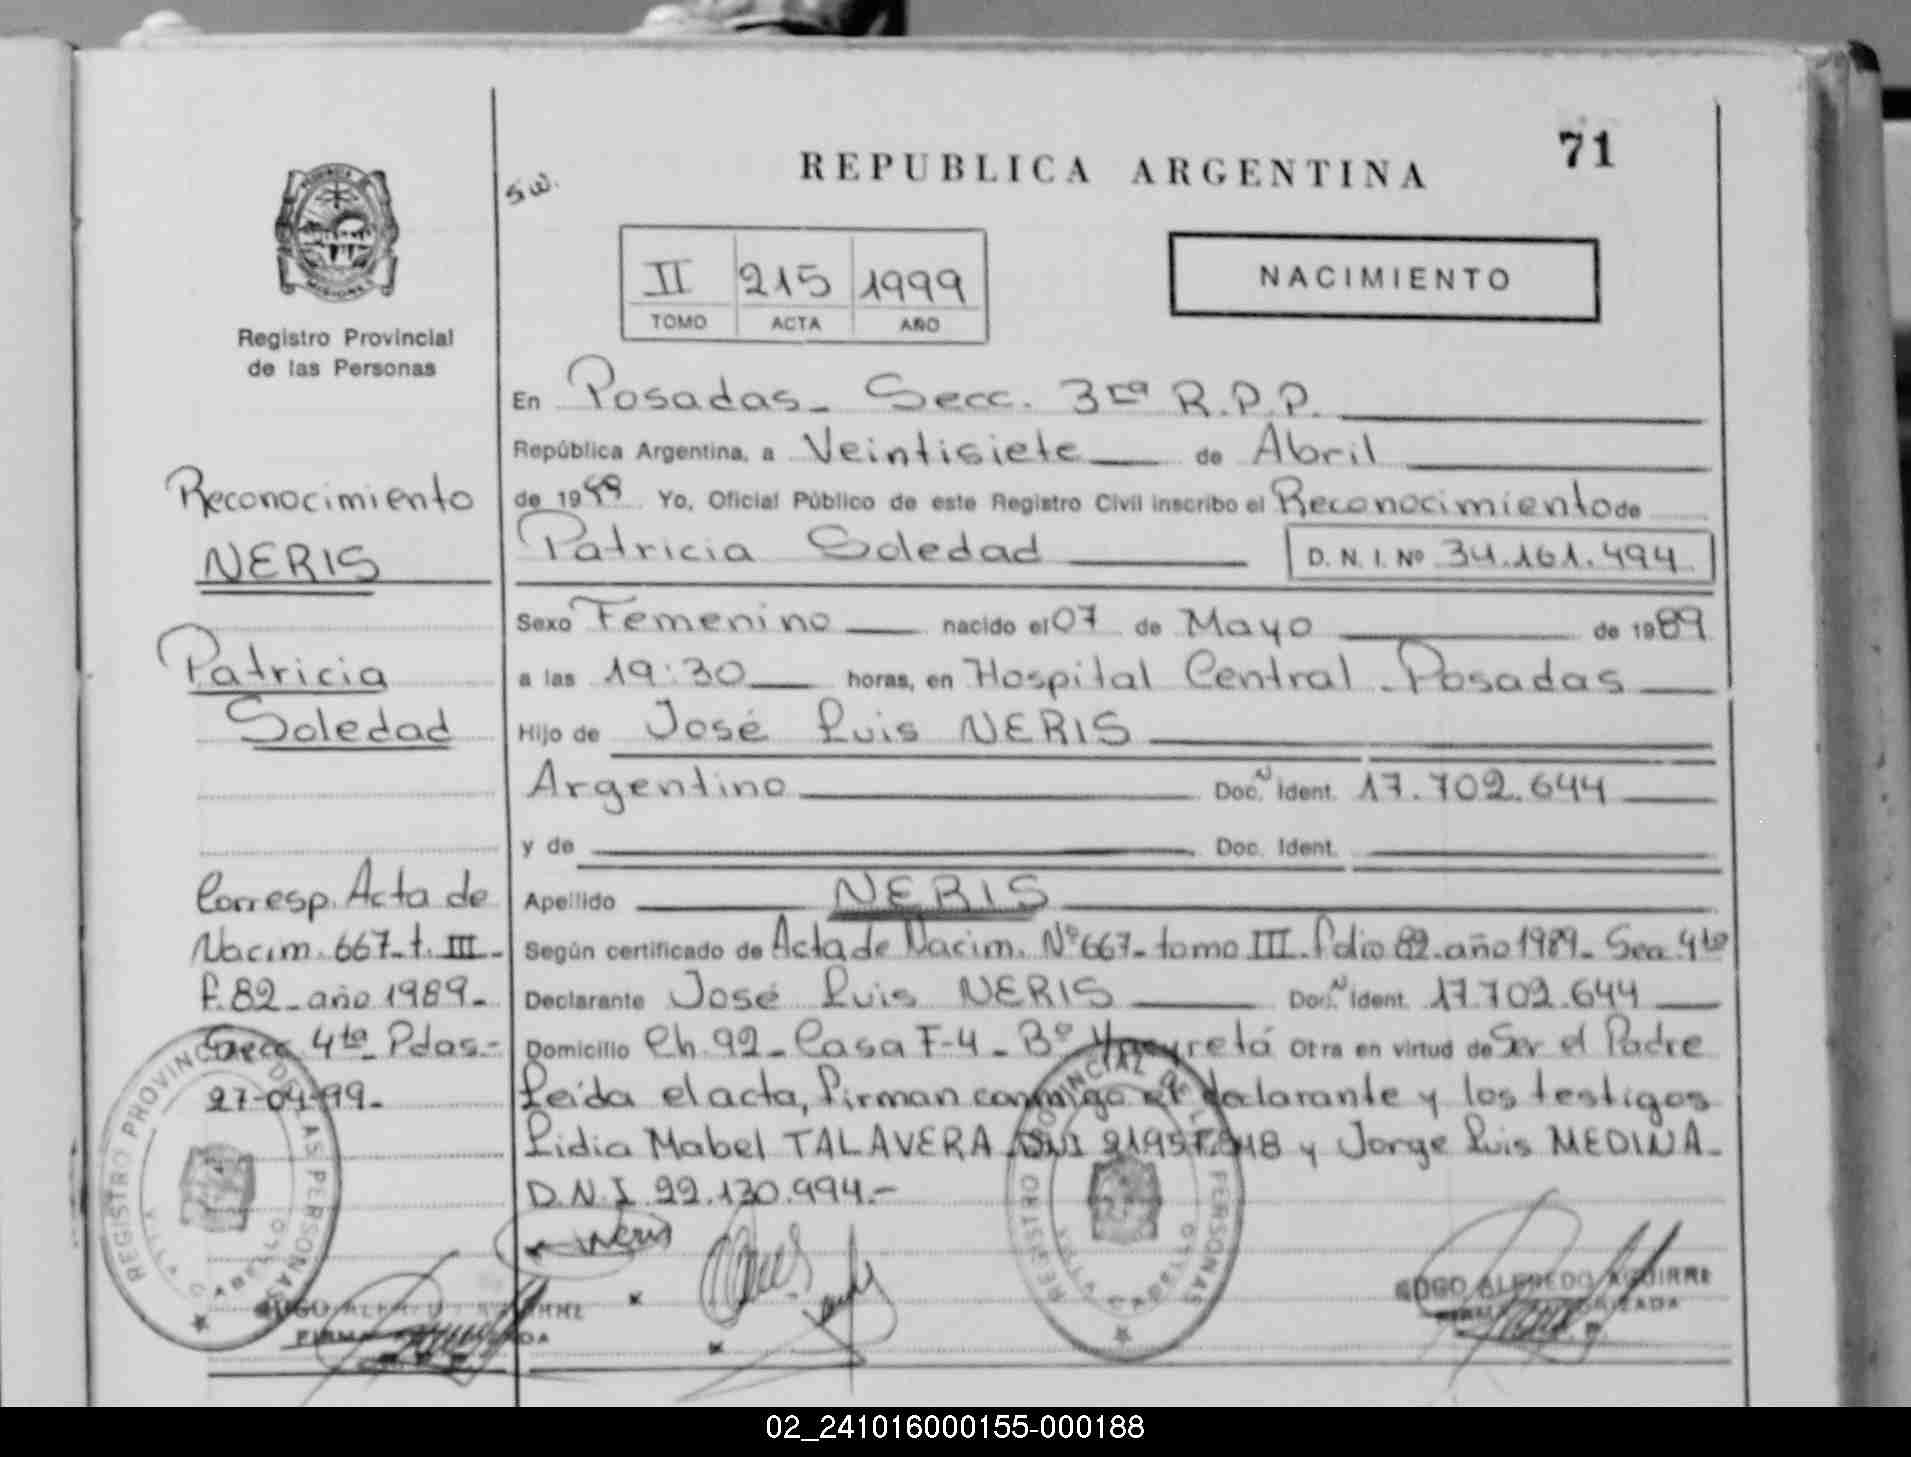 REPUBLICA ARGENTINA
71
s.w.
PROVINCIA
MISIONES
Registro Provincial
de las Personas
II 215 1999
TOMO ACTA AÑO
NACIMIENTO
Reconocimiento
NERIS
Patricia
Soledad
Corresp. Acta de
Nacim. 667-t. III-
f. 82-año 1989-
Secc. 4ta- Pdas.-
27-04-99.
En Posadas- Secc. 3ra R.P.P.
República Argentina, a Veintisiete de Abril
de 1999 Yo, Oficial Público de este Registro Civil inscribo el Reconocimiento de
Patricia Soledad D. N. I. Nº 34.161.494
Sexo Femenino nacido el 07 de Mayo de 1989
a las 19:30 horas, en Hospital Central - Posadas
Hijo de José Luis NERIS
Argentino Doc. N Ident. 17.702.644
y de Doc. Ident.
Apellido NERIS
Según certificado de Acta de Nacim. Nº 667- tomo III- folio 82- año 1989- Secc. 4ta
Declarante José Luis NERIS Doc. N Ident. 17.702.644
Domicilio Ch. 92- Casa F-4- Bº Yacyretá Otra en virtud de Ser el Padre
Leída el acta, firman conmigo el declarante y los testigos
Lidia Mabel TALAVERA DNI y Jorge Luis MEDINA-
D.N.I. 22.130.994.-
Neris
REGISTRO PROVINCIAL DE LAS PERSONAS
VILLA CABELLO
REGISTRO PROVINCIAL DE LAS PERSONAS
VILLA CABELLO
HUGO ALFREDO AGUIRRE
FIRMA AUTORIZADA
HUGO ALFREDO AGUIRRE
FIRMA AUTORIZADA
02_241016000155-000188